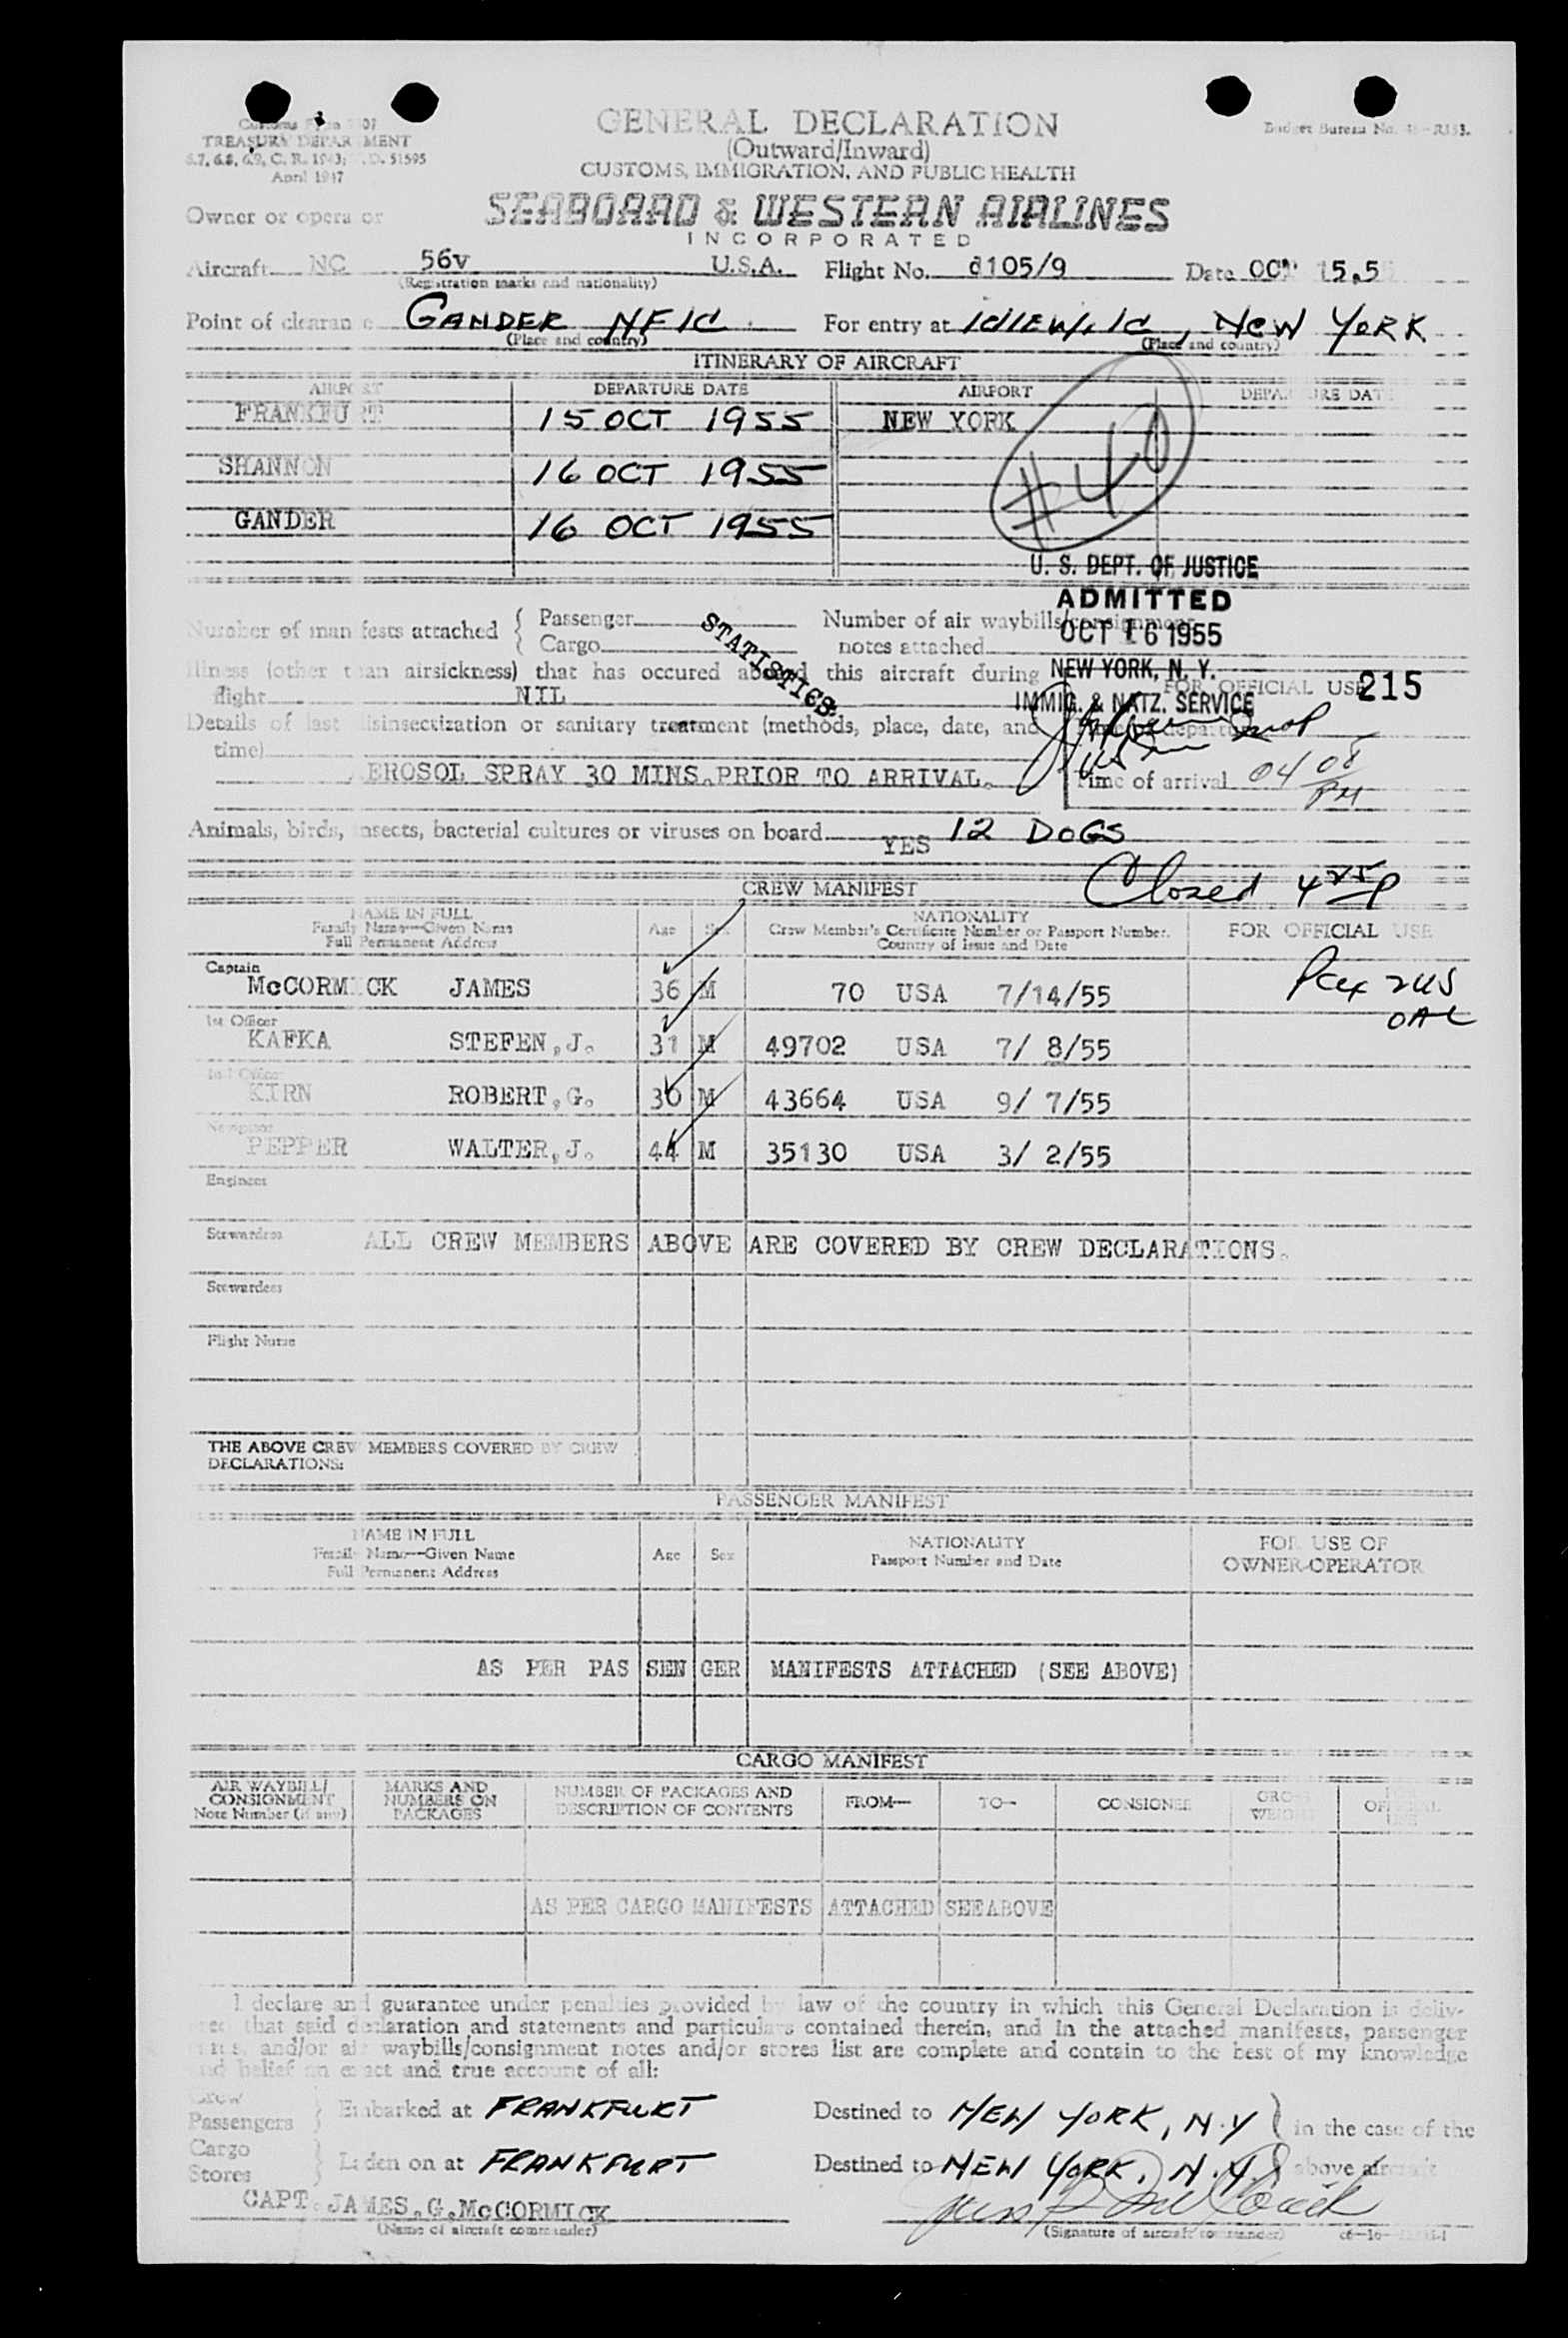 GENERAL DECLARATION
(Outward/Inward)
CUSTOMS, IMMIGRATION, AND PUBLIC HEALTH
TREASURY DEPARTMENT
April 1947
Budget Bureau No.
Owner or operator
SEABOARD & WESTERN AIRLINES
INCORPORATED
Aircraft NC 56v U.S.A. Flight No. d105/9 Date OCT 15,5
(Registration marks and nationality)
Point of clearance GANDER NFLD For entry at IDLEWILD, NEW YORK
(Place and country) (Place and country)
ITINERARY OF AIRCRAFT
AIRPORT DEPARTURE DATE AIRPORT DEPARTURE DATE
FRANKFURT 15 OCT 1955 NEW YORK
#40
SHANNON 16 OCT 1955
GANDER 16 OCT 1955
U. S. DEPT. OF JUSTICE
ADMITTED
OCT 16 1955
NEW YORK, N. Y.
IMMIG. & NATZ. SERVICE
Number of manifests attached { Passenger
Cargo
STATISTICS
Number of air waybills/consignment
notes attached
Illness (other than airsickness) that has occured aboard this aircraft during
flight NIL
FOR OFFICIAL USE 215
Details of last disinsectization or sanitary treatment (methods, place, date, and
time)
AEROSOL SPRAY 30 MINS.PRIOR TO ARRIVAL.
Time of arrival 04 08 PM
Animals, birds, insects, bacterial cultures or viruses on board YES 12 DOGS
Closed 4 25 P
CREW MANIFEST
NAME IN FULL
Family Name—Given Name
Full Permanent Address
Age Sex
NATIONALITY
Crew Member's Certificate Number or Passport Number.
Country of Issue and Date
FOR OFFICIAL USE
Captain
McCORMICK JAMES 36 M 70 USA 7/14/55
1st Officer
KAFKA STEFEN,J. 31 M 49702 USA 7/ 8/55
2nd Officer
KIRN ROBERT,G. 30 M 43664 USA 9/ 7/55
Navigator
PEPPER WALTER,J. 44 M 35130 USA 3/ 2/55
Engineer
Stewardess
ALL CREW MEMBERS ABOVE ARE COVERED BY CREW DECLARATIONS.
Stewardess
Flight Nurse
THE ABOVE CREW MEMBERS COVERED BY CREW
DECLARATIONS:
PASSENGER MANIFEST
NAME IN FULL
Family Name—Given Name
Full Permanent Address
Age Sex
NATIONALITY
Passport Number and Date
FOR USE OF
OWNER-OPERATOR
AS PER PAS SEN GER MANIFESTS ATTACHED (SEE ABOVE)
CARGO MANIFEST
AIR WAYBILL/
CONSIGNMENT
Note Number (if any)
MARKS AND
NUMBERS ON
PACKAGES
NUMBER OF PACKAGES AND
DESCRIPTION OF CONTENTS
FROM— TO— CONSIGNEE GROSS
WEIGHT
AS PER CARGO MANIFESTS ATTACHED SEEABOVE
I declare and guarantee under penalties provided by law of the country in which this General Declaration is deliv-
ered that said declaration and statements and particulars contained therein, and in the attached manifests, passenger
lists, and/or air waybills/consignment notes and/or stores list are complete and contain to the best of my knowledge
and belief an exact and true account of all:
Crew
Passengers } Embarked at FRANKFURT Destined to NEW YORK, N.Y } in the case of the
Cargo
Stores } Laden on at FRANKFURT Destined to NEW YORK, N.Y. } above aircraft
CAPT.JAMES.G.McCORMICK
(Name of aircraft commander) (Signature of aircraft commander)